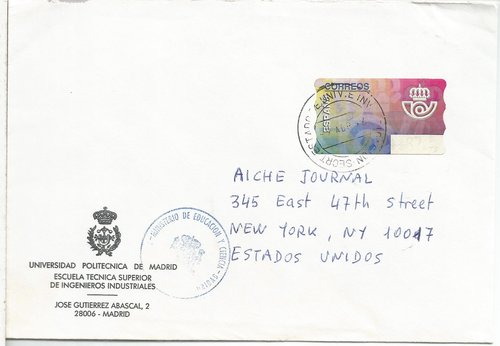 CORREOS
ESPAÑA
AICHE JOURNAL
345 East 47th Street
NEW YORK, NY 10017
ESTADOS UNIDOS
MINISTERIO DE EDUCACION Y CIENCIA
UNIVERSIDAD POLITECNICA DE MADRID
ESCUELA TECNICA SUPERIOR
DE INGENIEROS INDUSTRIALES
JOSE GUTIERREZ ABASCAL, 2
28006 - MADRID